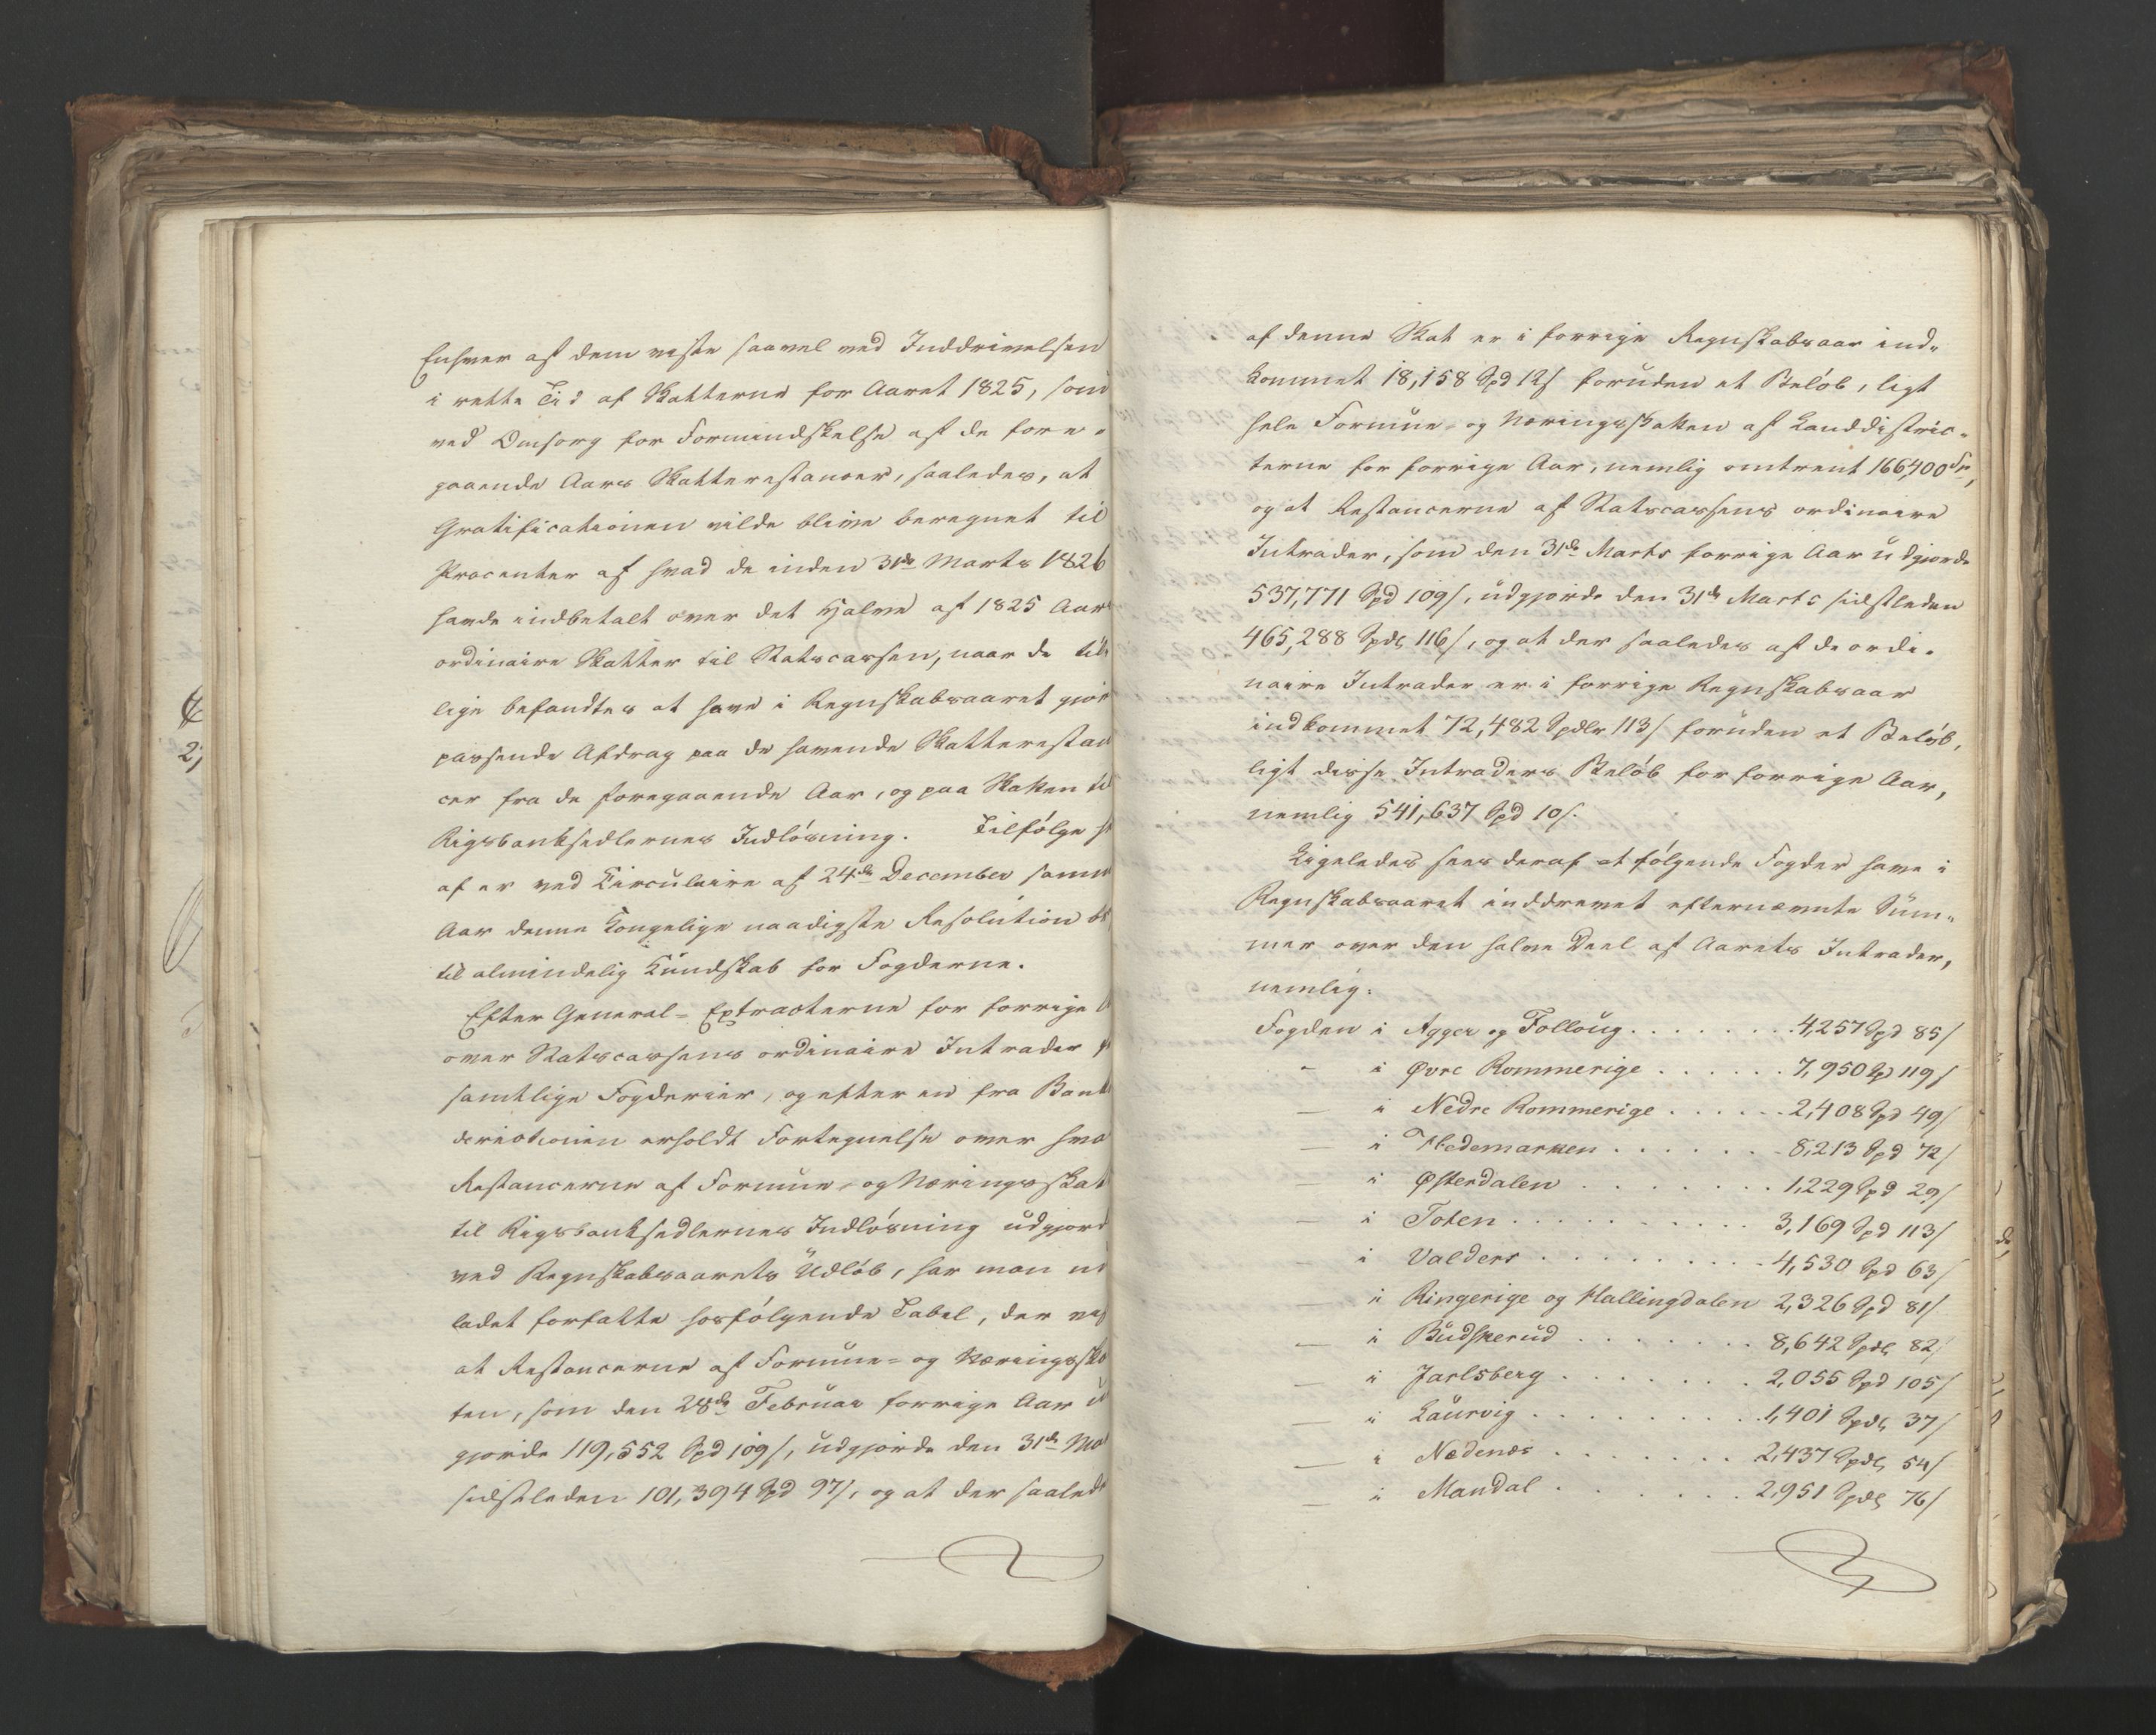 Enhver af dem viste saavel ved Inddrivelsen
i rette Tid af Skatterne for Aaret 1825, som
ved Omsorg for Formindskelse af de fore-
gaaende Aars Skatterestancer, saaledes, at
Gratificationen vilde blive beregnet til
Procenter af hvad de inden 31de Marts 1826
havde indbetalt over det Halve af 1825 Aars
ordinaire Skatter til Statscassen, naar de til
lige befandtes at have i Regnskabsaaret gjor
passende Afdrag paa de havende Skatterestan
cer fra de foregaaende Aar, og paa Skatten til
Rigsbanksedlernes Indløsning. Tilfølge h
af er ved Circulaire af 24de December samme
Aar denne Kongelige naadigste Resolution
til almindelig Kundskab for Fogderne.
Efter General-Extracterne for forrige
over Statscassens ordinaire Intrader
samtlige Fogderier, og efter en fra Bank
directionen erholdt Fortegnelse over hva
Restancerne af Formue- og Næringsskat
til Rigsbanksedlernes Indløsning udgjord
ved Regnskabsaarets Udløb, har man
ladet forfatte hosfølgende Tabel, der
at Restancerne af Formue- og Næringsska
ten, som den 28de Februar forrige Aar
gjorde 119,552 Spd 109/, udgjorde den 31de Ma
sidstleden 101,394 Spd 97/, og at der saaled
af denne Skat er i forrige Regnskabsaar ind-
kommet 18,158 Spd 12/ foruden et Beløb, ligt
hele Formue- og Næringsskatten af Landdistric-
terne for forrige Aar, nemlig omtrent 166,400 Sp,
og at Restancerne af Statscassens ordinaire
Intrader, som den 31de Marts forrige Aar udgjorde
537,771 Spd 109/, udgjorde den 31de Marts sidstleden
465,288 Spdlr 116/, og at der saaledes af de ordi-
naire Intrader er i forrige Regnskabsaar
indkommet 72,482 Spdlr 113/ foruden et Beløb,
ligt disse Intraders Beløb for forrige Aar,
nemlig 541,637 Spd 10/.
Ligeledes sees deraf at følgende Fogder have i
Regnskabsaaret inddrevet efternævnte Sum-
mer over den halve Deel af Aarets Intrader,
nemlig:
Fogden i Agger og Folloug . . . . . . . 4,257 Spd 85/
- i Øvre Rommerige . . . . . . 7,950 Spd 119/
— i Nedre Rommerige . . . . . . 2,408 Spd 49/
— i Hedemarken . . . . . . . 8,213 Spd 72/
— i Østerdalen . . . . . . . 1,229 Spd 29/
— i Toten . . . . . . . . . . 3,169 Spd 113/
- i Valders . . . . . . . . 4,530 Spd 63/
— i Ringerige og Hallingdalen 2,326 Spd 81/
— i Budskerud . . . . . . . 8,642 Spdlr 82/
— i Jarlsberg . . . . . . . 2,055 Spd 105/
— i Laurvig . . . . . . . . 1,401 Spdlr 37/
— i Nedenæs . . . . . . . 2,437 Spdlr 54/
— i Mandal . . . . . . . 2,951 Spdlr 76/